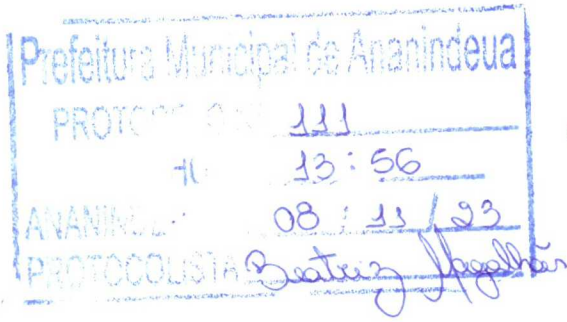 Prefeitura Municipal de Ananindeua
111
13:56
08/11/23
PROTOCOLISTA Beatriz Magalhães